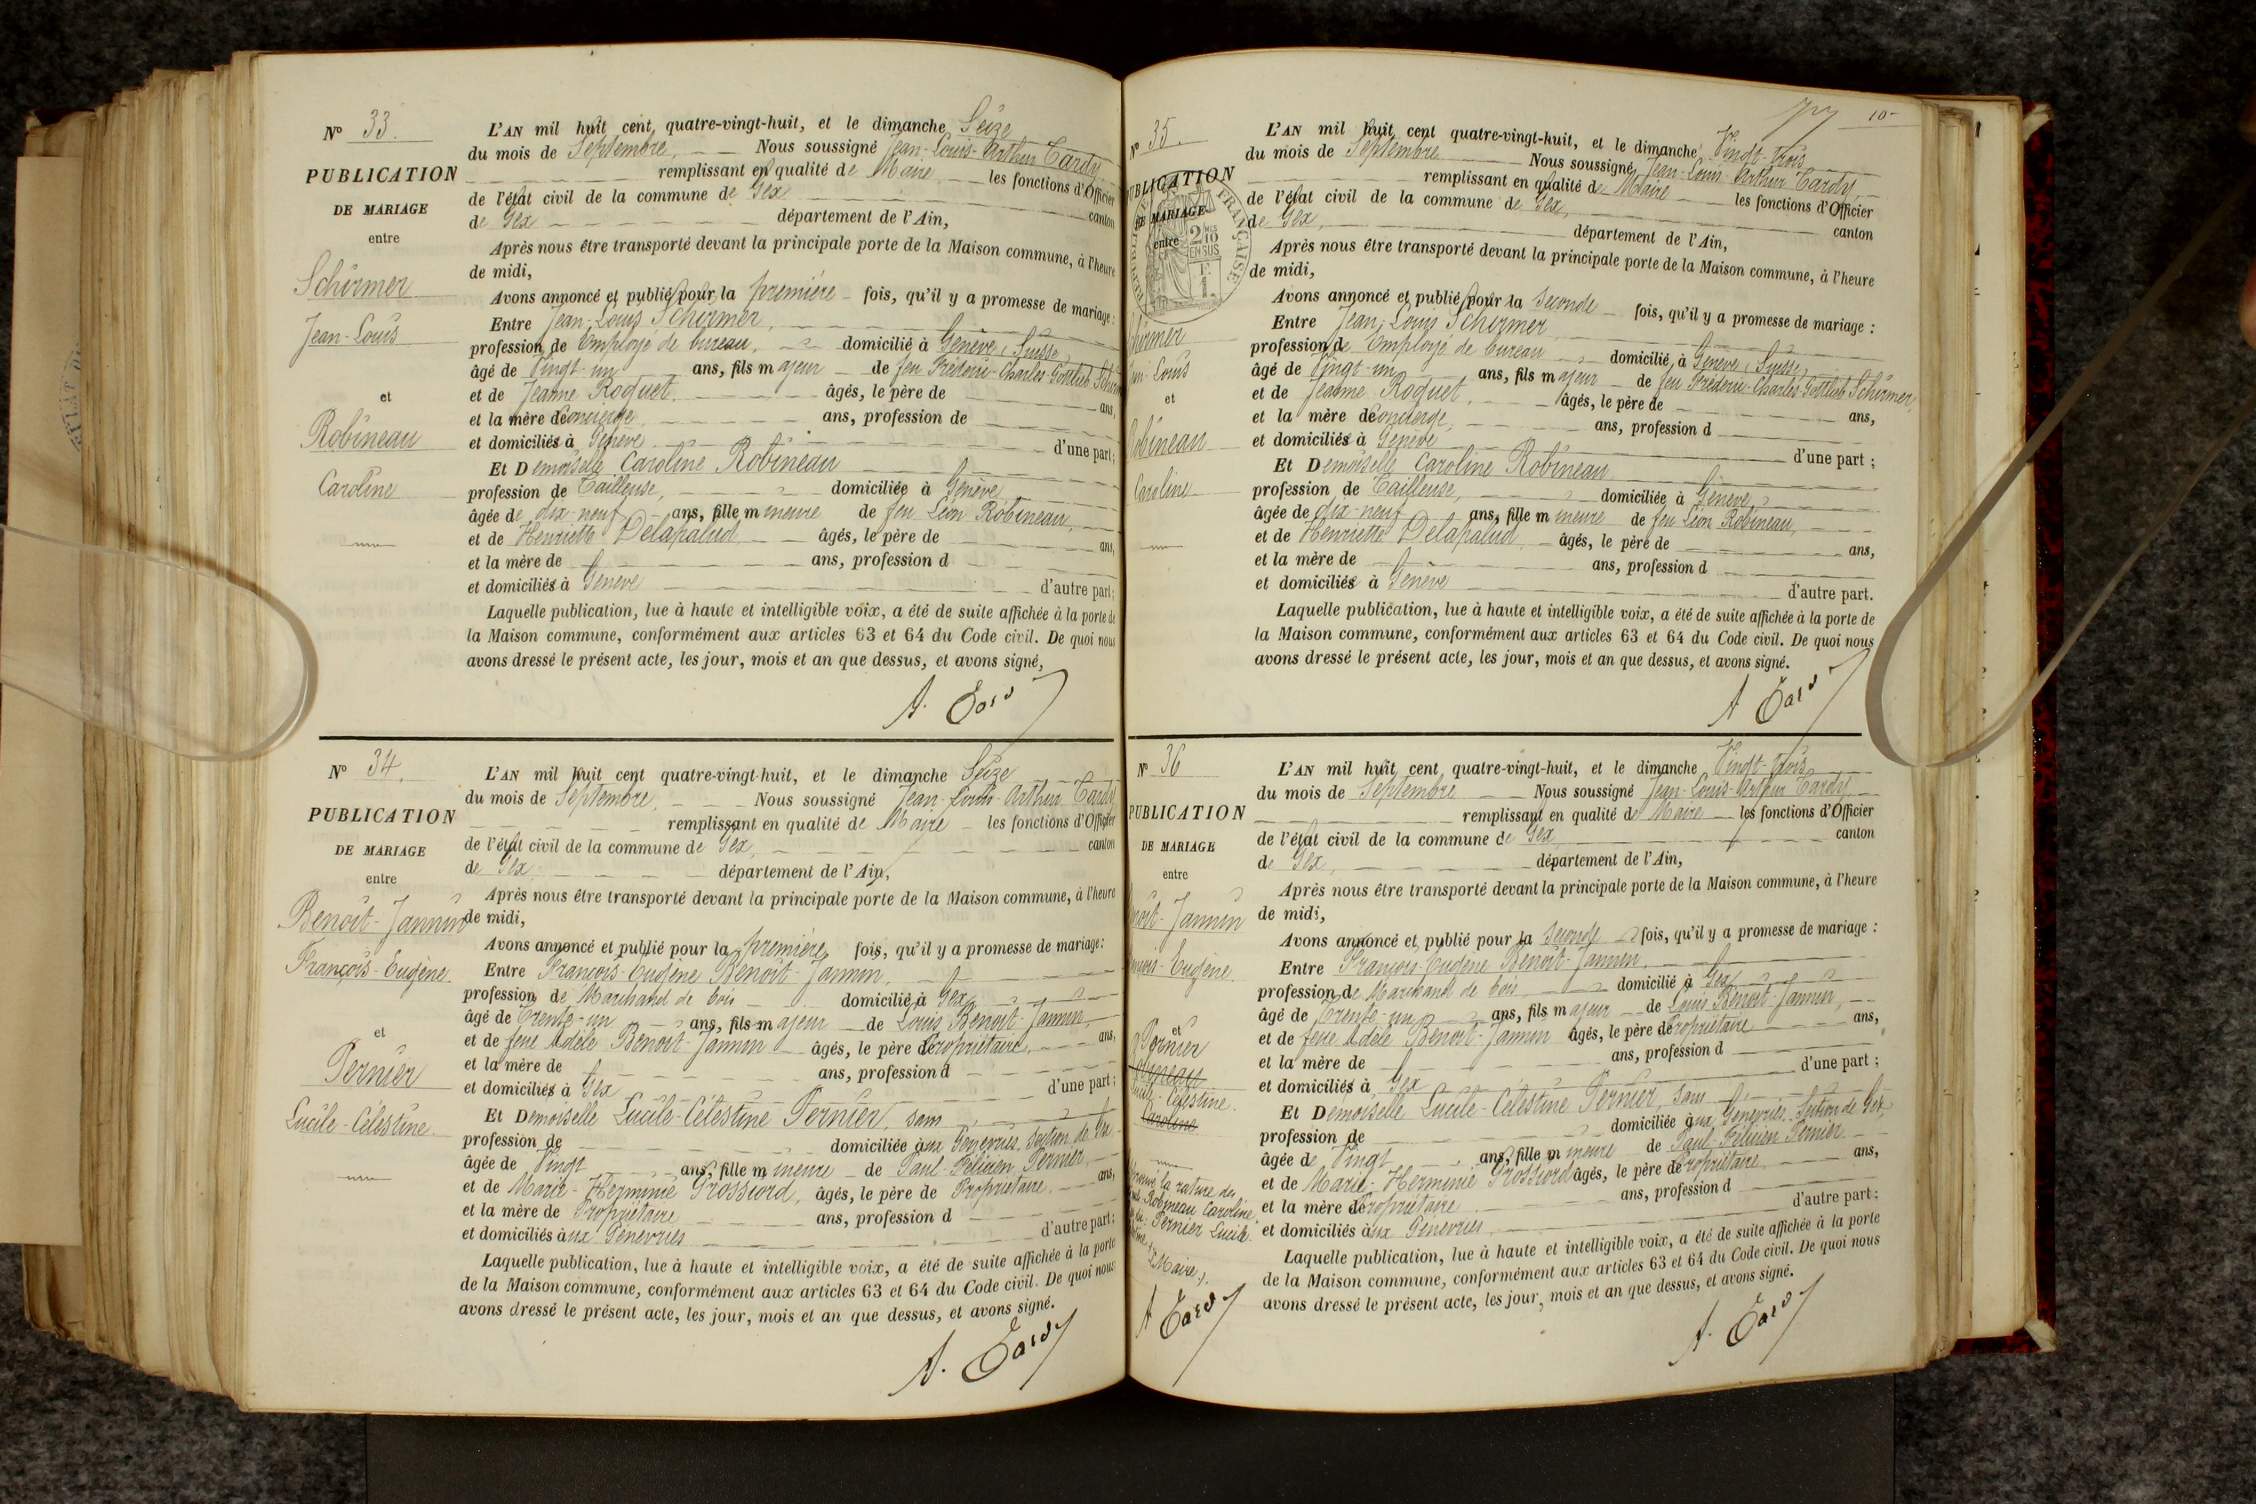 N° 33.
PUBLICATION
DE MARIAGE
entre
Schirmer
Jean-Louis
et
Robineau
Caroline
L'AN mil huit cent quatre-vingt-huit, et le dimanche Seize
du mois de Septembre, Nous soussigné Jean-Louis-Arthur Tardy
remplissant en qualité de Maire les fonctions d'Officier
de l'état civil de la commune de Gex canton
de Gex département de l'Ain,
Après nous être transporté devant la principale porte de la Maison commune, à l'heure
de midi,
Avons annoncé et publié pour la première fois, qu'il y a promesse de mariage :
Entre Jean-Louis Schirmer,
profession de Employé de bureau, domicilié à Genève, Suisse,
âgé de Vingt-un ans, fils majeur de feu Fréderic-Charles-Gottlieb Schirmer
et de Jeanne Roquet, âgés, le père de ans,
et la mère de Concierge, ans, profession de
et domiciliés à Genève d'une part ;
Et Demoiselle Caroline Robineau
profession de Tailleuse, domiciliée à Genève
âgée de dix-neuf ans, fille mineure de feu Léon Robineau,
et de Henriette Delapalud âgés, le père de ans,
et la mère de ans, profession d
et domiciliés à Genève d'autre part ;
Laquelle publication, lue à haute et intelligible voix, a été de suite affichée à la porte de
la Maison commune, conformément aux articles 63 et 64 du Code civil. De quoi nous
avons dressé le présent acte, les jour, mois et an que dessus, et avons signé,
A. Tardy
N° 34.
PUBLICATION
DE MARIAGE
entre
Benoît-Jannin
François-Eugène.
et
Pernier
Lucile-Célestine.
L'AN mil huit cent quatre-vingt-huit, et le dimanche Seize
du mois de Septembre, Nous soussigné Jean-Louis-Arthur Tardy
remplissant en qualité de Maire les fonctions d'Officier
de l'état civil de la commune de Gex, canton
de Gex département de l'Ain,
Après nous être transporté devant la principale porte de la Maison commune, à l'heure
de midi,
Avons annoncé et publié pour la première fois, qu'il y a promesse de mariage :
Entre François-Eugène Benoît-Jannin,
profession de Marchand de bois domicilié à Gex,
âgé de Trente-un ans, fils majeur de Louis Benoît-Jannin,
et de feue Adèle Benoît-Jannin âgés, le père de Propriétaire, ans,
et la mère de ans, profession d
et domiciliés à Gex d'une part ;
Et Demoiselle Lucile-Célestine Pernier, sans
profession de domiciliée aux Genevries, Section de Gex
âgée de Vingt ans, fille mineure de Paul-Félicien Pernier,
et de Marie-Herminie Grossiord, âgés, le père de Propriétaire, ans,
et la mère de Propriétaire ans, profession d
et domiciliés aux Genevries d'autre part ;
Laquelle publication, lue à haute et intelligible voix, a été de suite affichée à la porte
de la Maison commune, conformément aux articles 63 et 64 du Code civil. De quoi nous
avons dressé le présent acte, les jour, mois et an que dessus, et avons signé.
A. Tardy
10
N° 35.
PUBLICATION
DE MARIAGE
entre
RÉPUBLIQUE FRANÇAISE
2/10
EN SUS
Schirmer
Jean-Louis
et
Robineau
Caroline
L'AN mil huit cent quatre-vingt-huit, et le dimanche Vingt-trois
du mois de Septembre Nous soussigné Jean-Louis-Arthur Tardy,
remplissant en qualité de Maire les fonctions d'Officier
de l'état civil de la commune de Gex, canton
de Gex, département de l'Ain,
Après nous être transporté devant la principale porte de la Maison commune, à l'heure
de midi,
Avons annoncé et publié pour la seconde fois, qu'il y a promesse de mariage :
Entre Jean-Louis Schirmer
profession de Employé de bureau domicilié à Genève, Suisse,
âgé de Vingt-un ans, fils majeur de feu Fréderic-Charles-Gottlieb Schirmer,
et de Jeanne Roquet, âgés, le père de ans,
et la mère de Concierge, ans, profession d
et domiciliés à Genève d'une part ;
Et Demoiselle Caroline Robineau
profession de Tailleuse, domiciliée à Genève,
âgée de dix-neuf ans, fille mineure de feu Léon Robineau,
et de Henriette Delapalud, âgés, le père de ans,
et la mère de ans, profession d
et domiciliés à Genève d'autre part.
Laquelle publication, lue à haute et intelligible voix, a été de suite affichée à la porte de
la Maison commune, conformément aux articles 63 et 64 du Code civil. De quoi nous
avons dressé le présent acte, les jour, mois et an que dessus, et avons signé.
A Tardy
N° 36
PUBLICATION
DE MARIAGE
entre
Benoît-Jannin
François-Eugène.
et
Pernier
Robineau
Lucile-Célestine.
Caroline
la rature des
Robineau Caroline,
Pernier Lucile
Maire,
A Tardy
L'AN mil huit cent quatre-vingt-huit, et le dimanche Vingt-trois
du mois de Septembre Nous soussigné Jean-Louis-Arthur Tardy,
remplissant en qualité de Maire les fonctions d'Officier
de l'état civil de la commune de Gex, canton
de Gex, département de l'Ain,
Après nous être transporté devant la principale porte de la Maison commune, à l'heure
de midi,
Avons annoncé et publié pour la seconde fois, qu'il y a promesse de mariage :
Entre François-Eugène Benoît-Jannin,
profession de Marchand de bois, domicilié à Gex,
âgé de Trente-un ans, fils majeur de Louis Benoît-Jannin,
et de feue Adèle Benoît-Jannin âgés, le père de Propriétaire ans,
et la mère de ans, profession d
et domiciliés à Gex d'une part ;
Et Demoiselle Lucile-Célestine Pernier, sans
profession de domiciliée aux Genevries, Section de Gex,
âgée de Vingt ans, fille mineure de Paul-Félicien Pernier
et de Marie-Herminie Grossiord âgés, le père de Propriétaire ans,
et la mère de Propriétaire ans, profession d
et domiciliés aux Genevries, d'autre part ;
Laquelle publication, lue à haute et intelligible voix, a été de suite affichée à la porte
de la Maison commune, conformément aux articles 63 et 64 du Code civil. De quoi nous
avons dressé le présent acte, les jour, mois et an que dessus, et avons signé.
A. Tardy